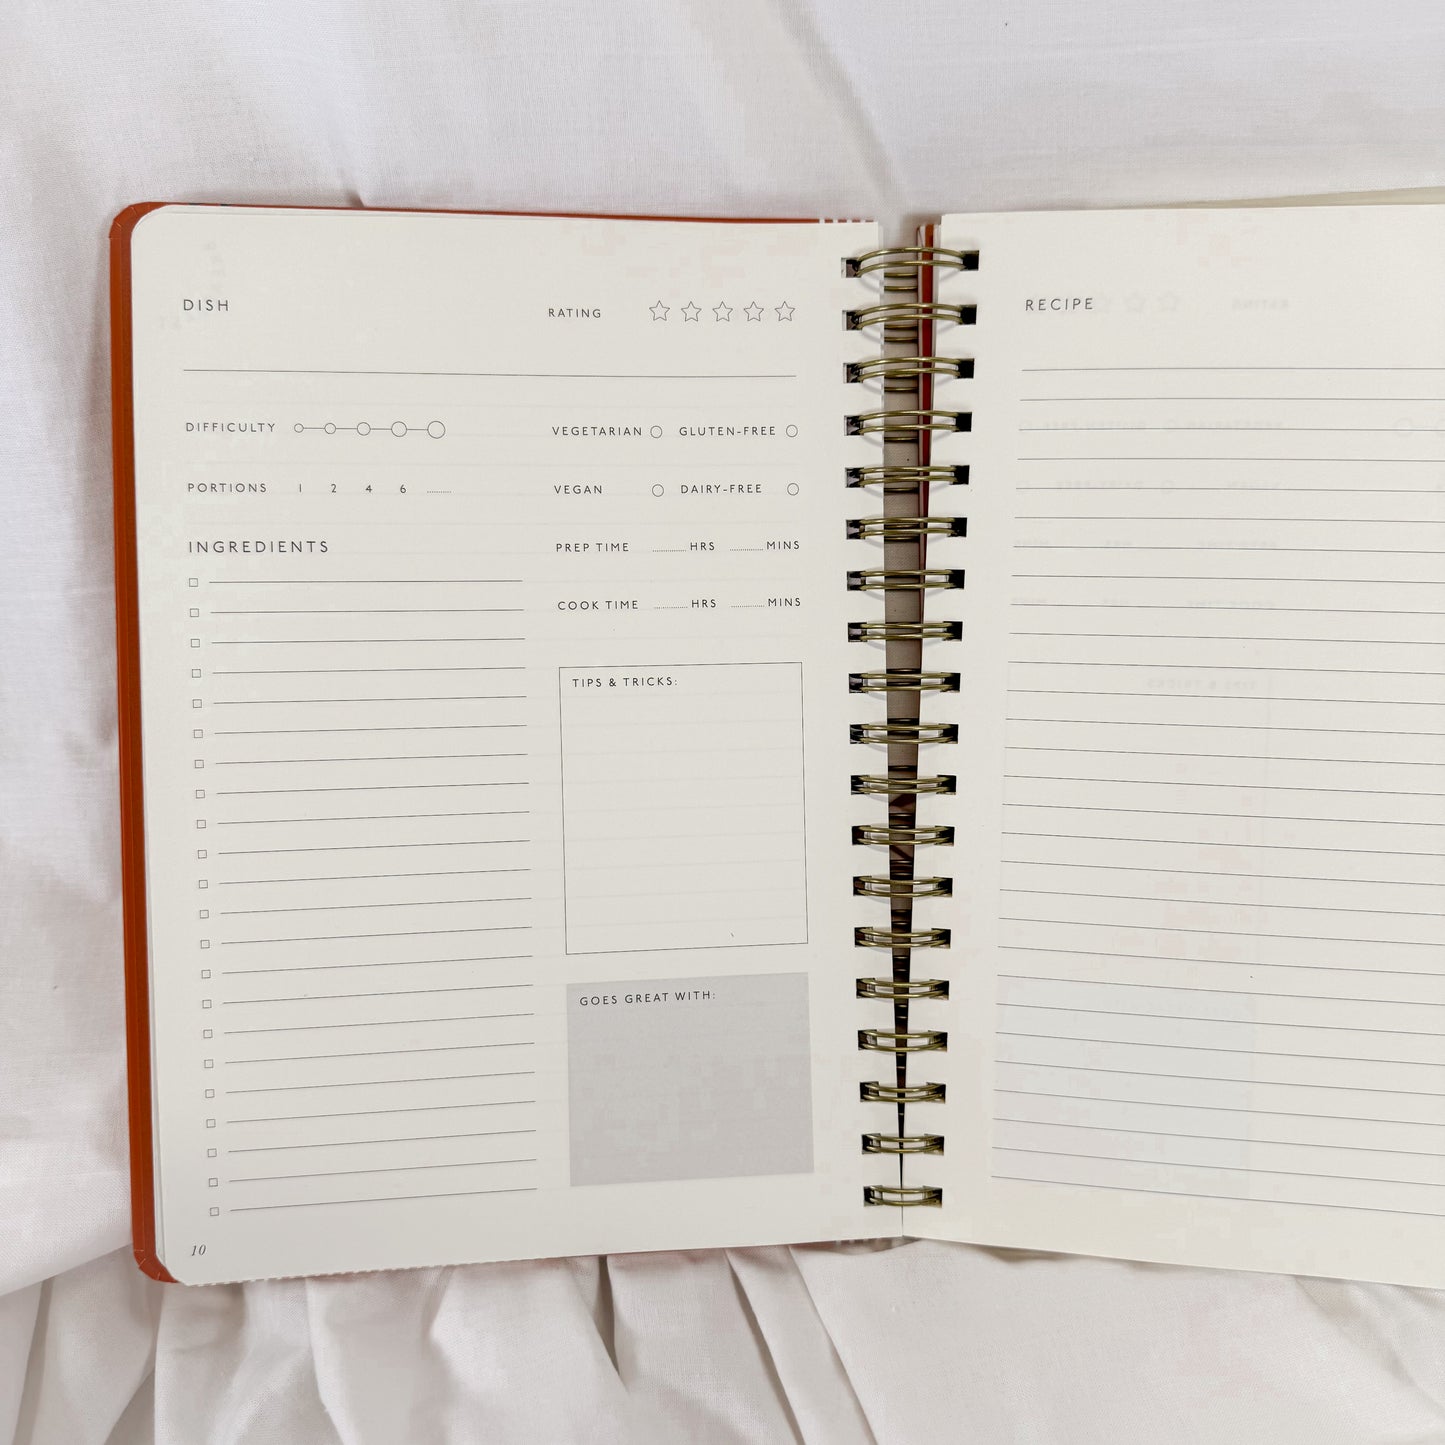 DISH
RATING
DIFFICULTY
VEGETARIAN GLUTEN-FREE
PORTIONS 1 2 4 6 ........
VEGAN DAIRY-FREE
INGREDIENTS
PREP TIME ........ HRS ........ MINS
COOK TIME ........ HRS ........ MINS
TIPS & TRICKS:
GOES GREAT WITH:
10
RECIPE